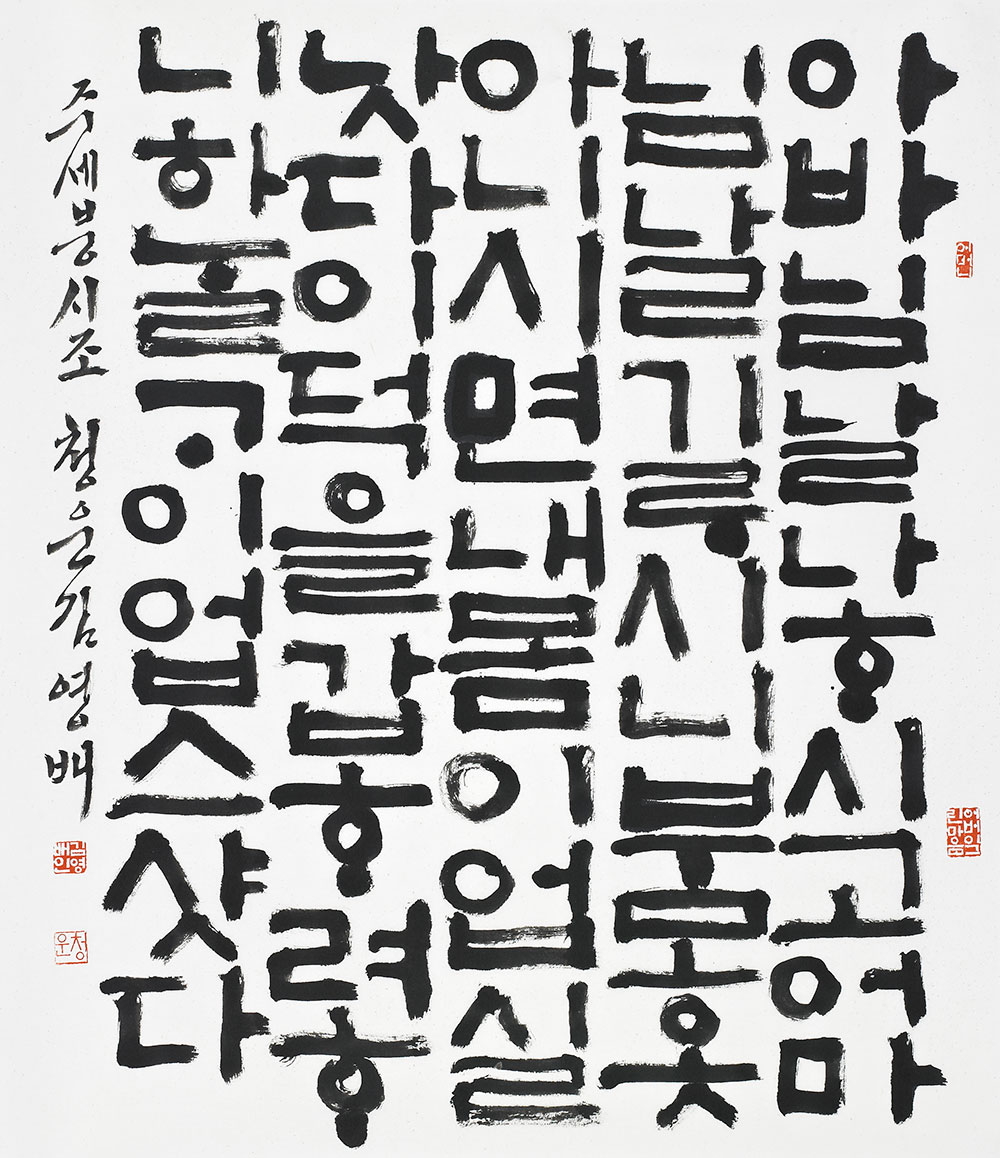 아바님날나ᄒᆞ시고어마
님날기ᄅᆞ시니부모옷
아니시면내몸이업실
낫다이덕을갑ᄒᆞ려ᄒᆞ
니하ᄂᆞᆯᄀᆞ이업스샷다
주세붕시조 청운김영배
김영배인
청운